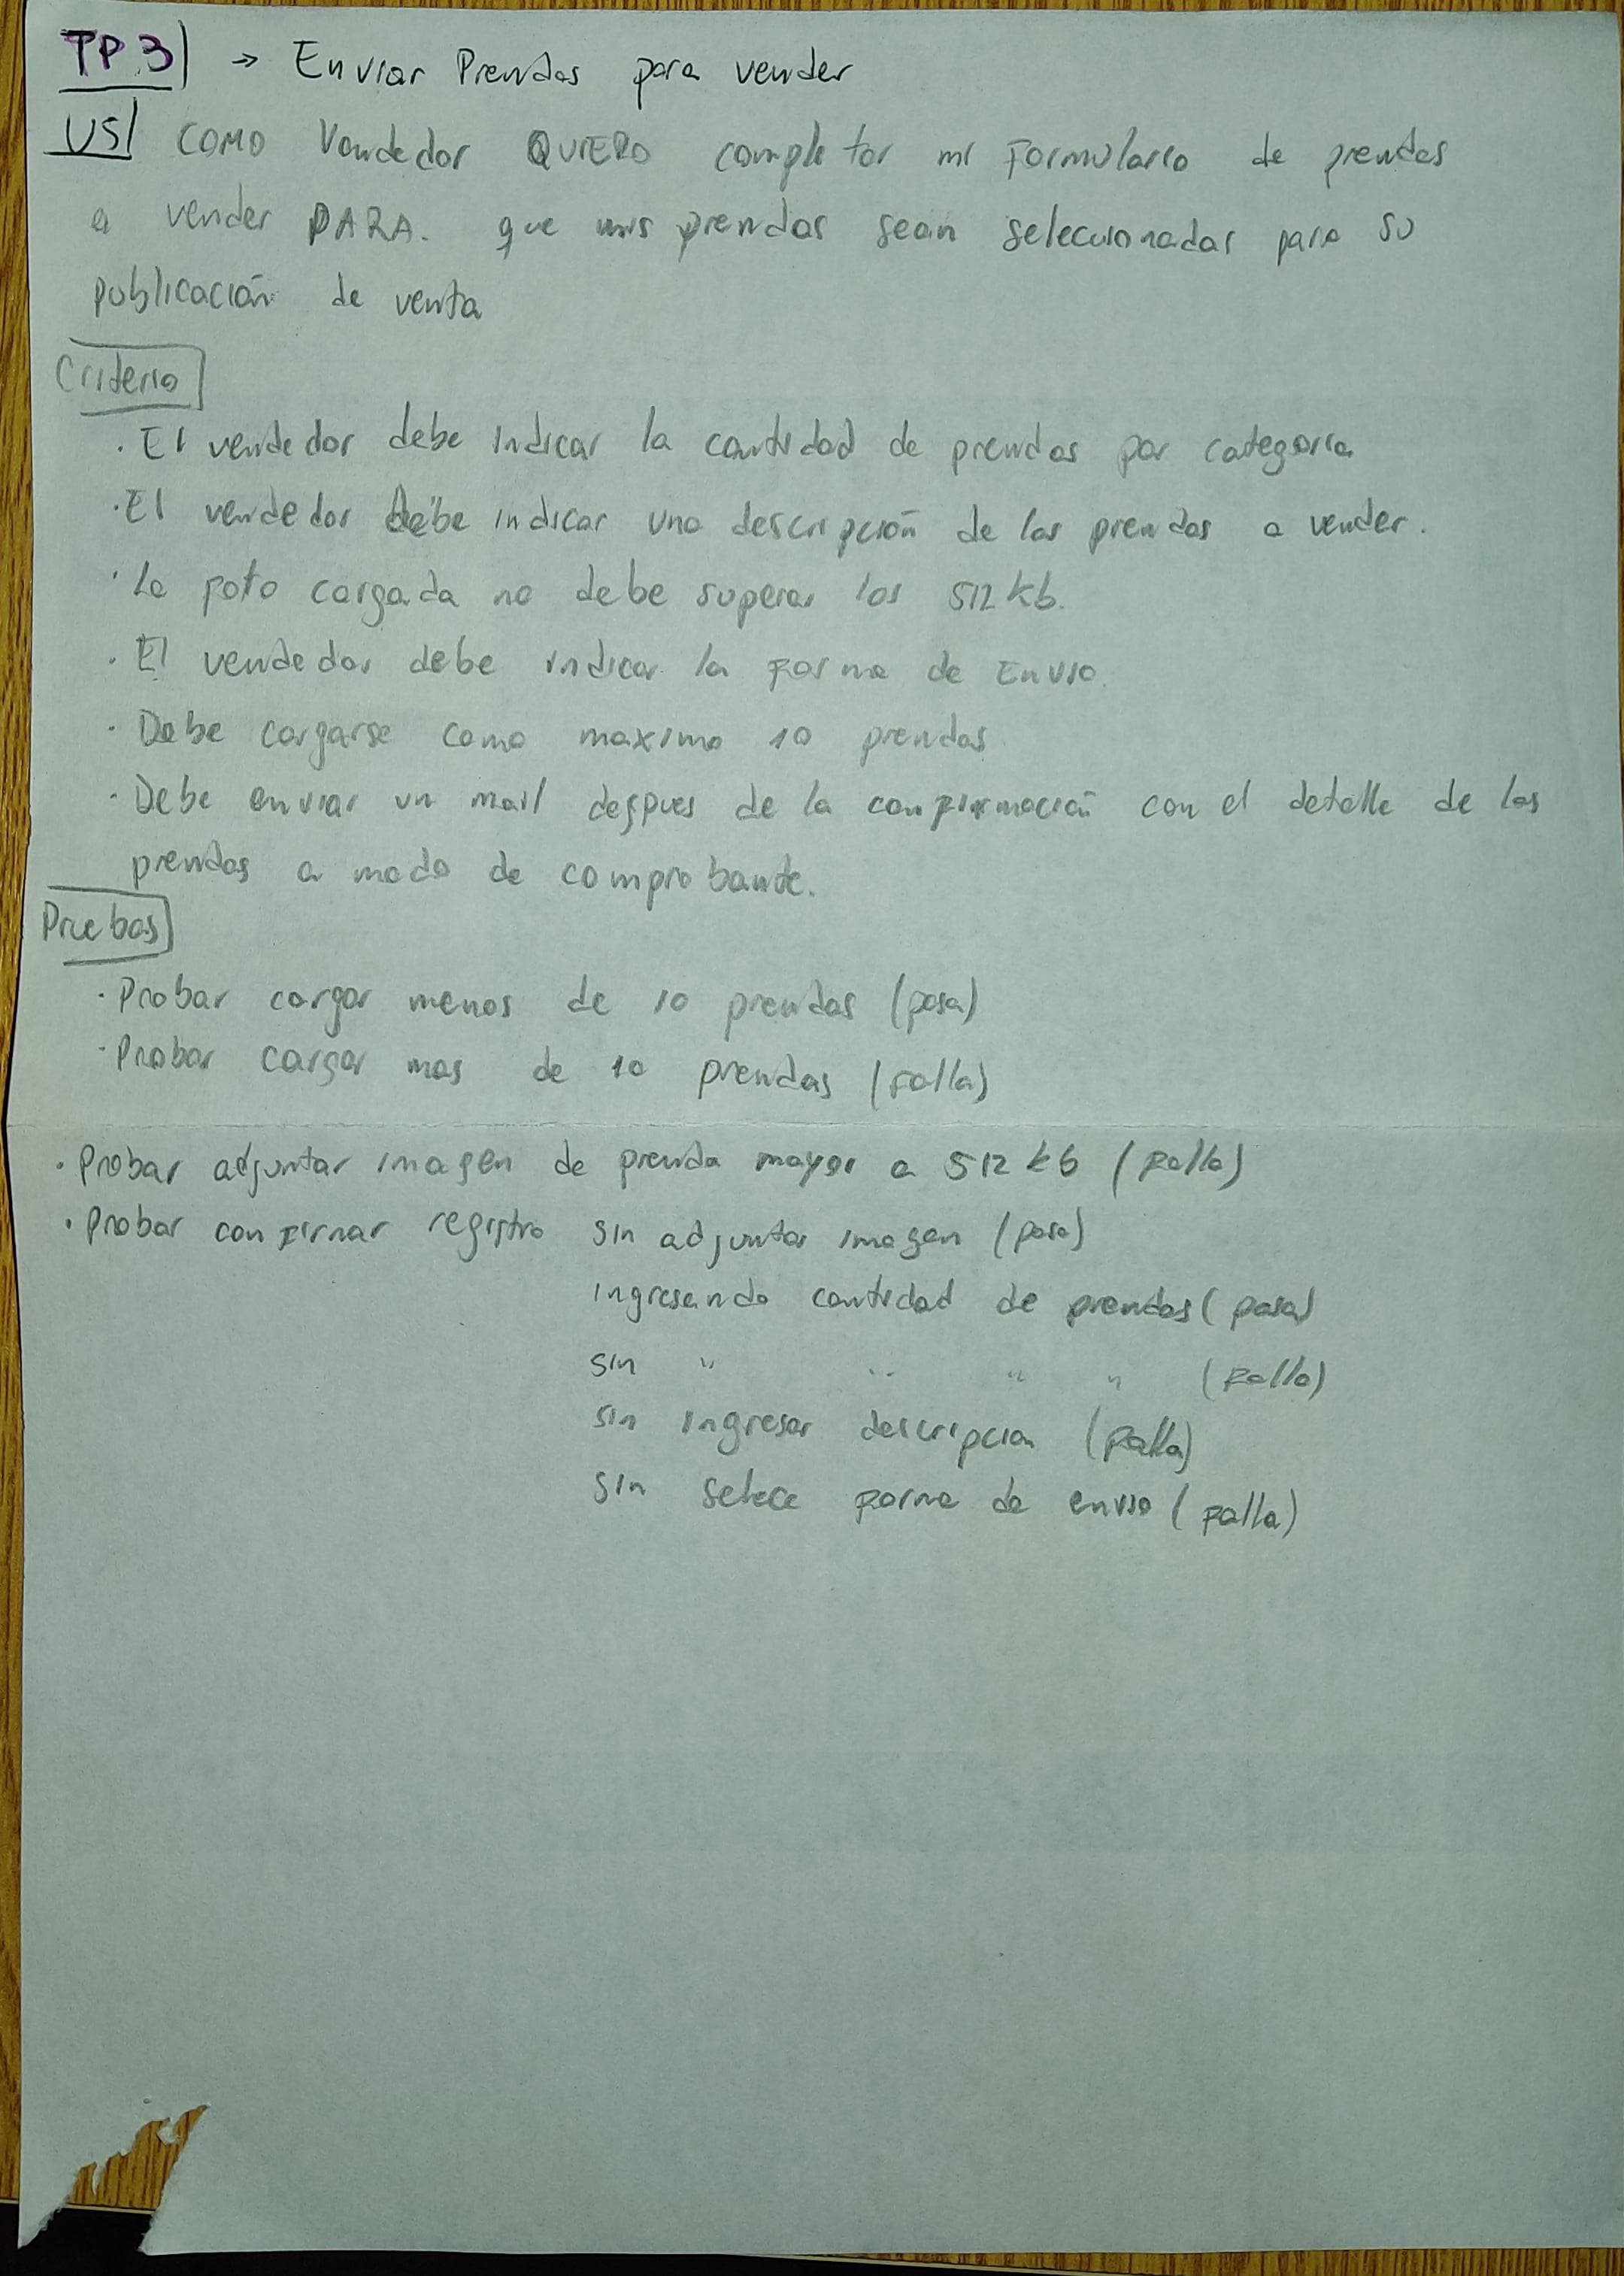 TP3 → Enviar Prendas para vender
US COMO Vendedor QUIERO completar mi Formulario de prendas
a vender PARA. que mis prendas sean seleccionadas para su
publicación de venta
Criterio
· El vendedor debe indicar la cantidad de prendas por categoria
· El vendedor debe indicar una descripción de las prendas a vender.
· La foto cargada no debe superar los 512 kb.
· El vendedor debe indicar la forma de Envio.
· Debe cargarse como maximo 10 prendas
· Debe enviar un mail despues de la confirmación con el detalle de las
prendas a modo de comprobante.
Pruebas
· Probar cargar menos de 10 prendas (pasa)
· Probar cargar mas de 10 prendas (Falla)
· Probar adjuntar imagen de prenda mayor a 512 kb (Falla)
· Probar confirmar registro sin adjuntar imagen (pasa)
ingresando cantidad de prendas (pasa)
sin " " " " (Falla)
sin ingresar descripcion (Falla)
sin selecc forma de envio (falla)